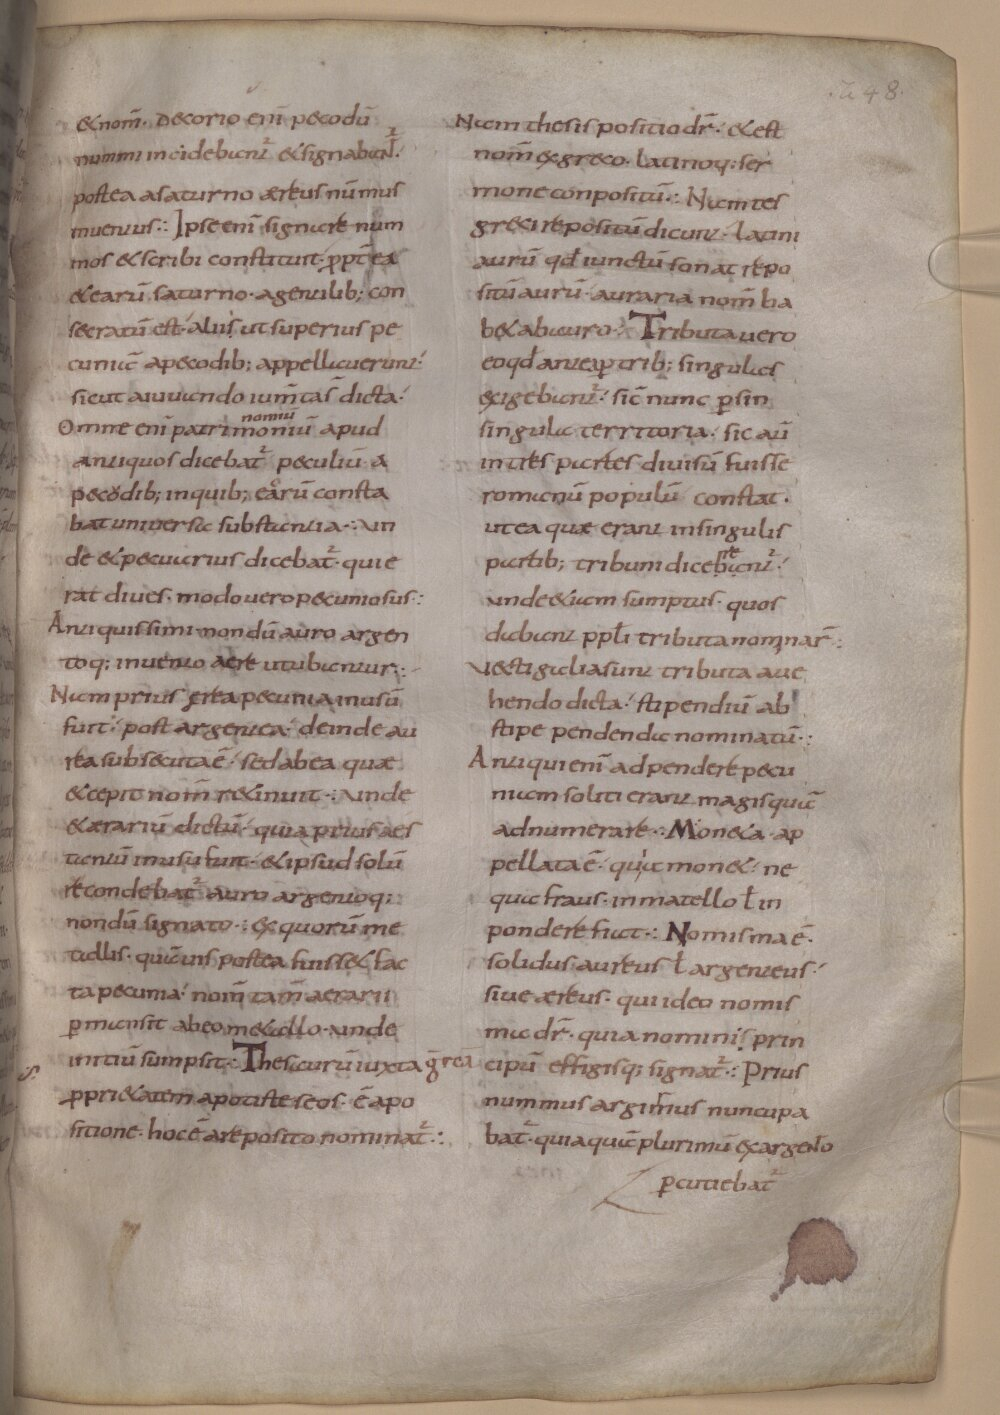 ·ũ 48·
& nom̄. De corio enī pecodū
nummi incidebant᷑ & signabant᷑.
postea a saturno aereus nūmus
inuentus·: Ipse enī signare num
mos & scribi constituit· ꝓpt̄ ea
& earū saturno· a gentilib; con
secratū est· alii ut superius pe
cuniā a pecodib; appellauerunt·
sicut a iuuando ium̄ta s̄ dicta·
Omne enī patrimoniū apud
nomniū
antiquos dicebat᷑ peculiū a
pecodib; in quib; earū consta
bat uniuersa substantia·: un
de & pecuarius dicebat᷑· qui e
rat diues· modo uero pecuniosus·:
Antiquissimi nondū auro argen
toq; inuento aere utubantur·:
Nam prius erea pecunia in usū
fuit· post argentea· deinde au
rea subsecuta ē· sed ab ea quae
& cepit nom̄ retinuit·: unde
& aerariū dictū· quia prius aes
tantū in usu fuit· & ipsud solū
recondebat᷑ auro argentoq;
nondū signato·: ex quorū me
tallis· quāuis postea fuiss& fac
ta pecunia· nom̄ tam̄ aerarii
ꝑmansit ab eo m&allo unde
initiū sumpsit·: Thesaurū iuxta grēā
ꝓpri&atem apo tiste seos· ē a po
sitione· hoc ē a reposito nominat᷑·:
Nam thesis positio dr̄· & est
nom̄ ex greco· latinoq; ser
mone conpositū·: Nam tes
gr&i repositū dicunt· latini
aurū qd̄ iunctū sonat repo
sitū aurū· auraria nom̄ ha
b& ab auro·: Tributa uero
eo qd̄ antea ꝑ trib; singulas
exigebant᷑· sic̄ nunc ꝑ sin
singula territoria· sic aū
in tres partes diuisū fuisse
romanū populū constat·
ut ea quae erant in singulis
partib; tribuni dicebant᷑·
re
unde & iam sumptus· quos
dabant pp̄li tributa nominar̄·:
Uectigalia sunt tributa a ue
hendo dicta· stipendiū ab
stipe pendenda nominatū·:
Antiqui enī adpendere pecu
niam soliti erant magis quā
adnumerare·: Mon&a· ap
pellata ē· quia mon&· ne
qua fraus· in matello ł in
pondere fiat·: Nomisma ē·
solidus aureus ł argenteus·
siue aereus· qui ideo nomis
ma dr̄· quia nominis prin
cipū effigisq; signat᷑·: Prius
nummus argirius nuncupa
bat᷑· quia quā plurimū ex argento
ꝑcutiebat᷑